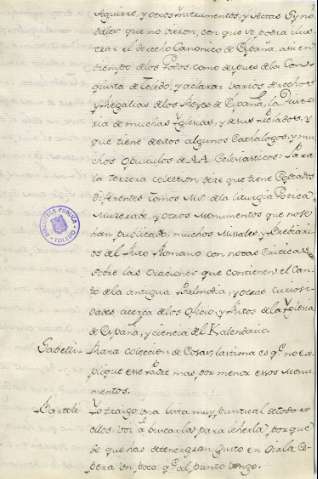 Aguirre, y otros Instrumentos, y Actas Sy no-
dales que no vieron, con que se podia ilus-
trar el derecho Canonico de España, asi en
tiempo de los Godos, como despues de la Con-
quista de Toledo, y aclarar varios derechos
y Regalias de los Reyes de España, la Histo-
ria de muchas Iglesias, y de sus Prelados. Y
que tiene de estos algunos Cathalogos, y mu-
chos Opusculos de AA. Eclesiasticos. Para
la tercera coleccion, dice que tiene copiados
diferentes tomos de la liturgia Gotica
Muzarabe, y otros Monumentos que no se
han publicado: muchos Misales, y Breviarios
del Rito Romano con notas
sobre las Oraciones que contienen, el Can-
to de la antigua Psalmodia, y otras curiosi-
dades acerca de los Oficios, y Ritos de la Yglesia
de España, y ciencia del Kalendario.
Gabeli. Rara coleccion de cosas, lastima es q.e no ex-
plique ese Padre mas por menor esos Monu-
mentos.
Bartoli. Yo traigo una lista muy puntual de todos
ellos. Voi a buscarla, para leherla, porque
pera un poco, q.e al punto vengo.
BIBLIOTECA PUBLICA
TOLEDO